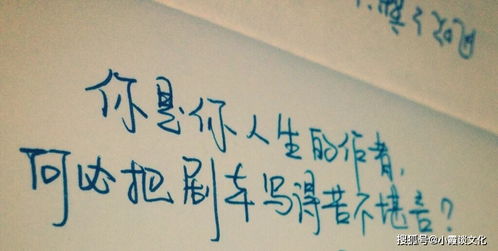 你是你人生的作者，
何必把剧本写得苦不堪言？
搜狐号@小霞谈文化